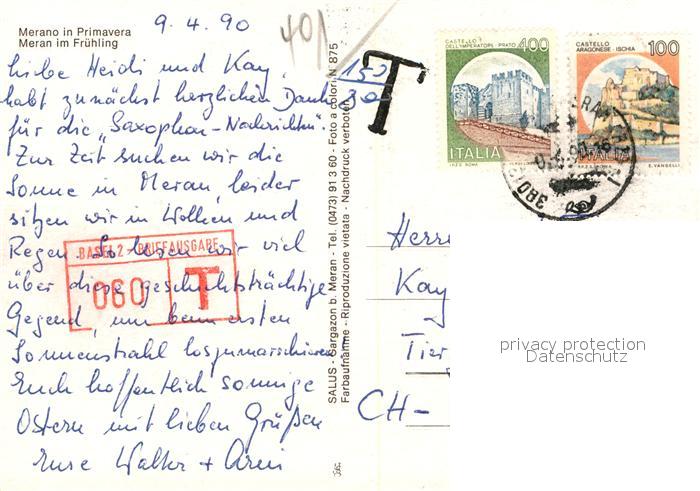 9.4.90
Merano in Primavera
Meran im Frühling
Liebe Heidi und Kay,
habt zunächst herzlichen Dank
für die „Saxophon-Nachrichten".
Zur Zeit suchen wir die
Sonne in Meran, leider
sitzen wir in Wolken und
Regen. So lesen wir viel
über diese geschichtsträchtige
Gegend, um beim ersten
Sonnenstrahl loszumarschieren.
Euch hoffentlich sonnige
Ostern mit lieben Grüßen
Eure Walter +
BASEL 2 - BRIEFAUSGABE
060 T
SALUS - Gargazon b. Meran - Tel. (0473) 91 3 60 - Foto a colori N 875
Farbaufnahme - Riproduzione vietata - Nachdruck verboten
401
150
30
T
CASTELLO
DELL'IMPERATORE · PRATO 400
ITALIA
CASTELLO
ARAGONESE - ISCHIA 100
ITALIA
E. VANGELLI
Herrn
Kay
Tier
CH-
privacy protection
Datenschutz